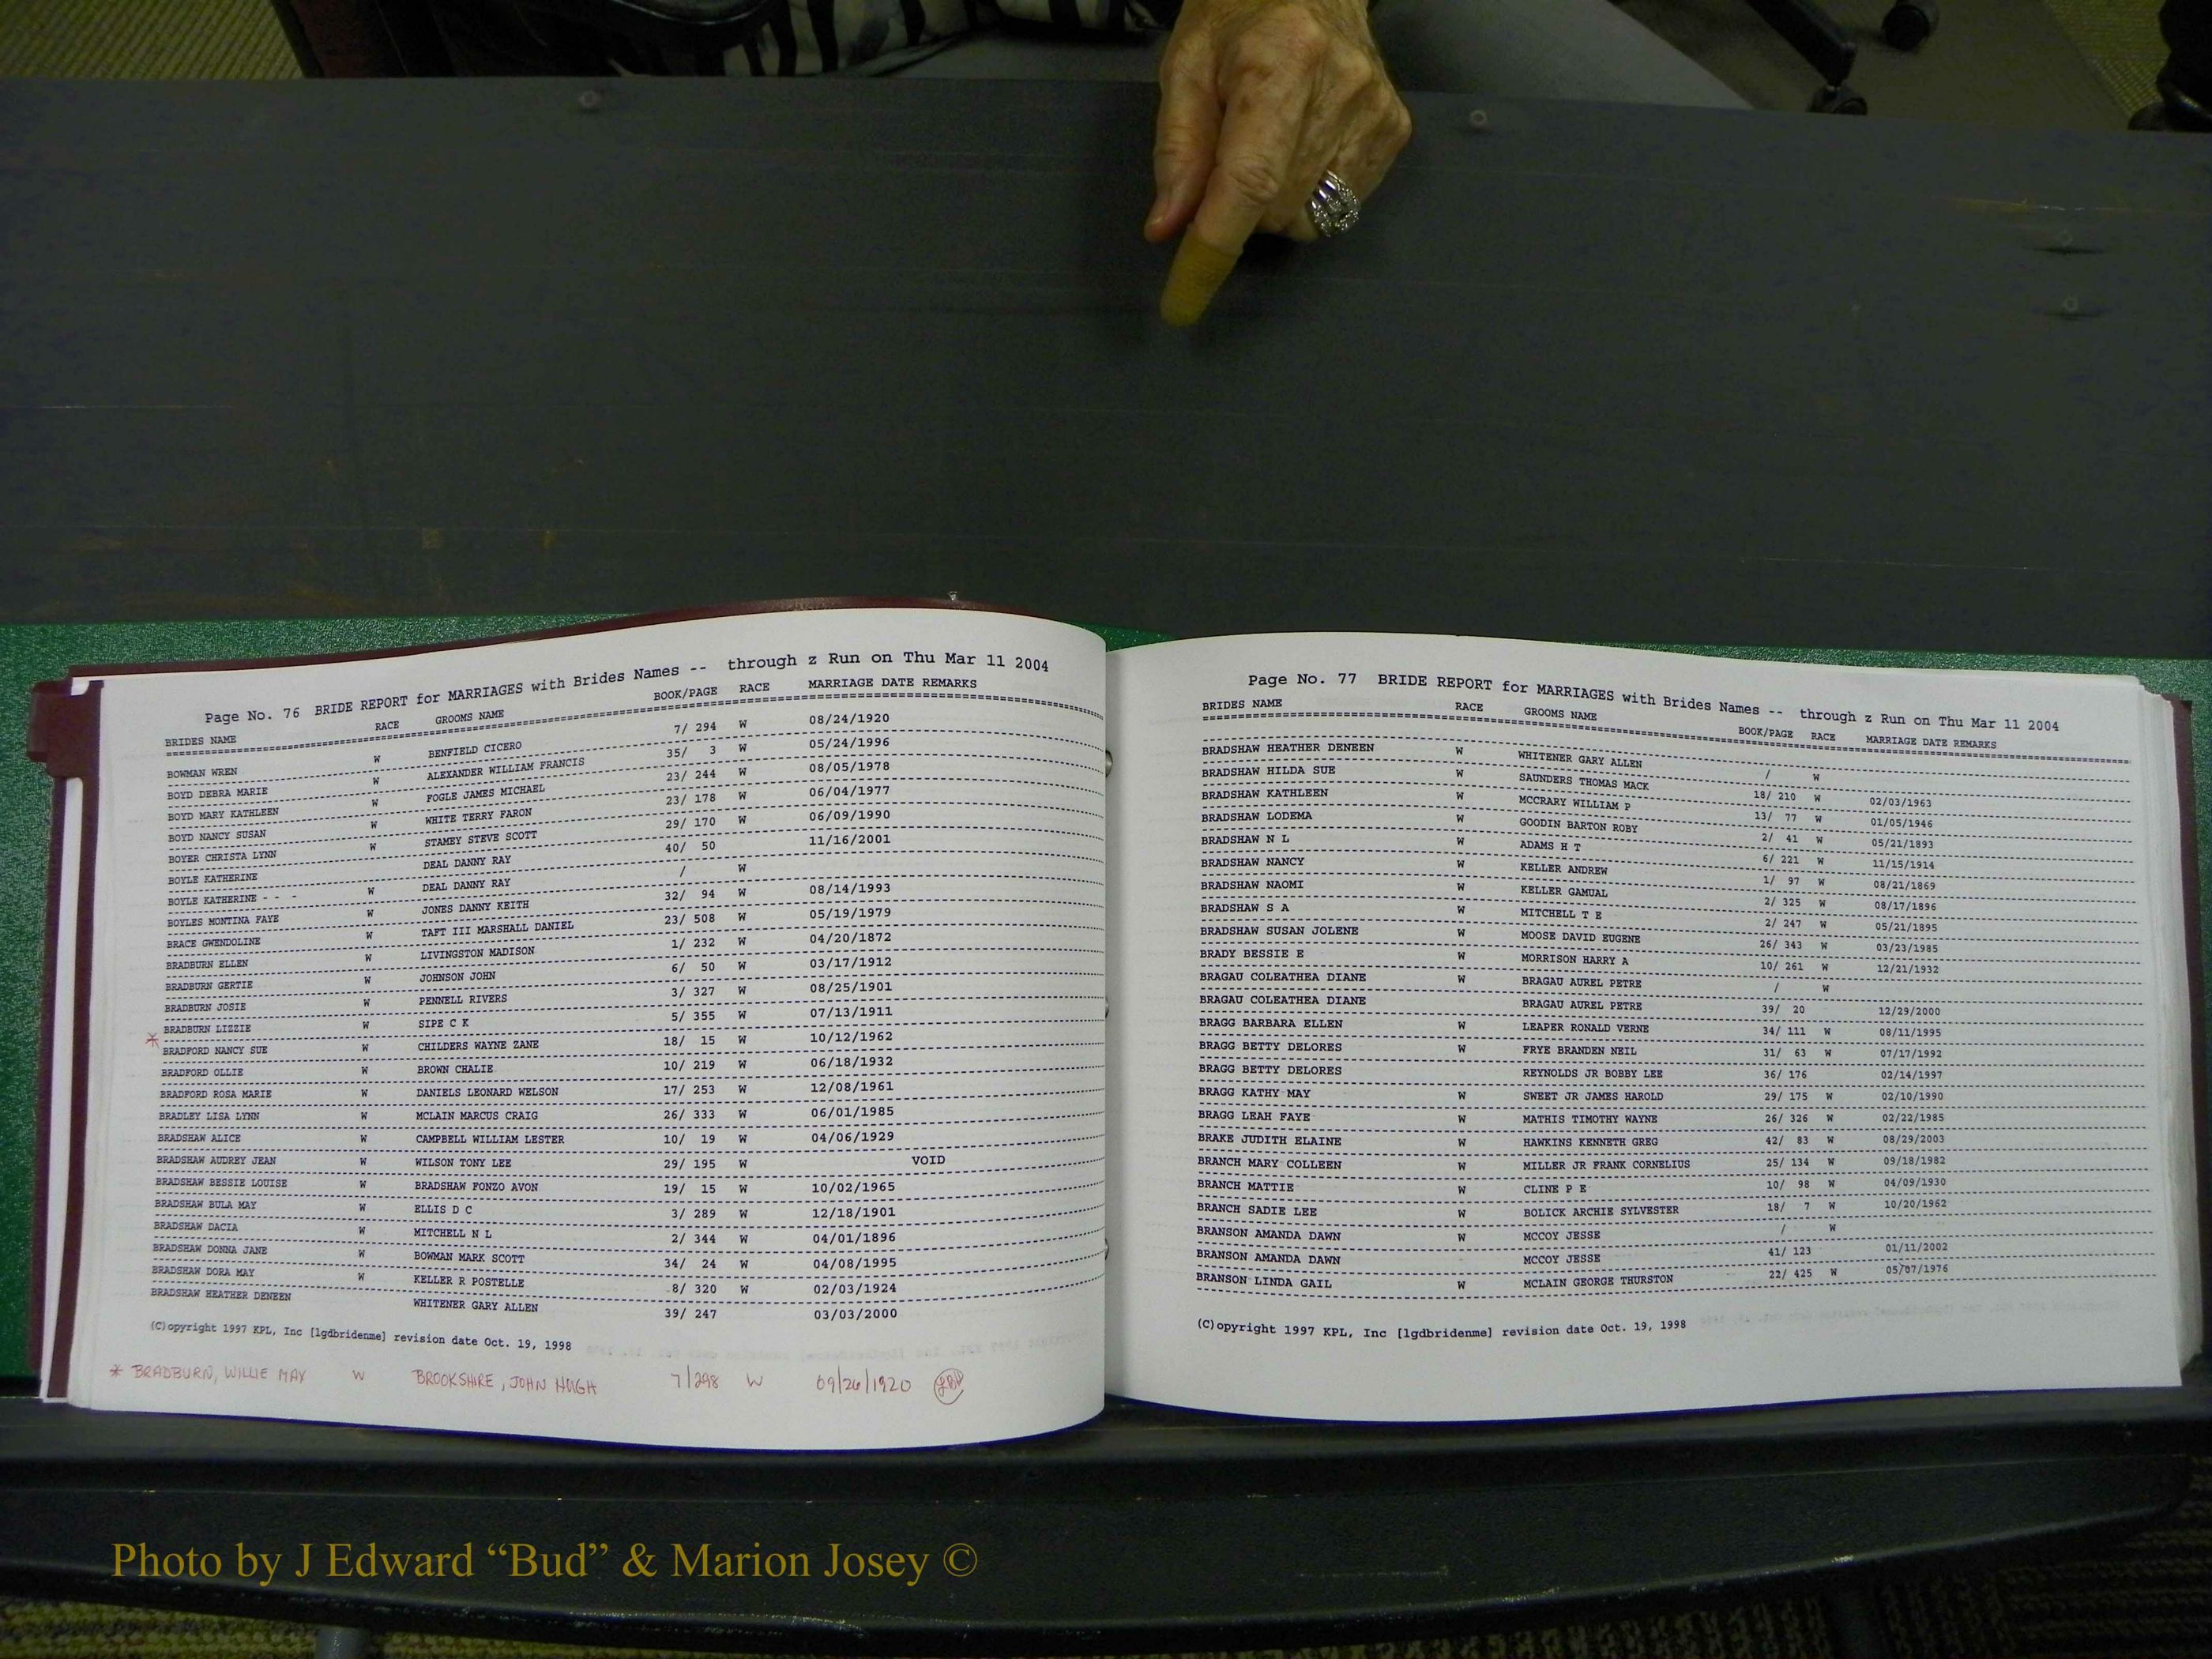 Page No. 76 BRIDE REPORT for MARRIAGES with Brides Names -- through z Run on Thu Mar 11 2004
BRIDES NAME RACE GROOMS NAME BOOK/PAGE RACE MARRIAGE DATE REMARKS
BOWMAN WREN W BENFIELD CICERO 7/ 294 W 08/24/1920
BOYD DEBRA MARIE W ALEXANDER WILLIAM FRANCIS 35/ 3 W 05/24/1996
BOYD MARY KATHLEEN W FOGLE JAMES MICHAEL 23/ 244 W 08/05/1978
BOYD NANCY SUSAN W WHITE TERRY FARON 23/ 178 W 06/04/1977
BOYER CHRISTA LYNN W STAMEY STEVE SCOTT 29/ 170 W 06/09/1990
BOYLE KATHERINE DEAL DANNY RAY 40/ 50 11/16/2001
BOYLE KATHERINE - - - W DEAL DANNY RAY / W
BOYLES MONTINA FAYE W JONES DANNY KEITH 32/ 94 W 08/14/1993
BRACE GWENDOLINE W TAFT III MARSHALL DANIEL 23/ 508 W 05/19/1979
BRADBURN ELLEN W LIVINGSTON MADISON 1/ 232 W 04/20/1872
BRADBURN GERTIE W JOHNSON JOHN 6/ 50 W 03/17/1912
BRADBURN JOSIE W PENNELL RIVERS 3/ 327 W 08/25/1901
BRADBURN LIZZIE W SIPE C K 5/ 355 W 07/13/1911
* BRADFORD NANCY SUE W CHILDERS WAYNE ZANE 18/ 15 W 10/12/1962
BRADFORD OLLIE W BROWN CHALIE 10/ 219 W 06/18/1932
BRADFORD ROSA MARIE W DANIELS LEONARD WELSON 17/ 253 W 12/08/1961
BRADLEY LISA LYNN W MCLAIN MARCUS CRAIG 26/ 333 W 06/01/1985
BRADSHAW ALICE W CAMPBELL WILLIAM LESTER 10/ 19 W 04/06/1929
BRADSHAW AUDREY JEAN W WILSON TONY LEE 29/ 195 W VOID
BRADSHAW BESSIE LOUISE W BRADSHAW FONZO AVON 19/ 15 W 10/02/1965
BRADSHAW BULA MAY W ELLIS D C 3/ 289 W 12/18/1901
BRADSHAW DACIA W MITCHELL N L 2/ 344 W 04/01/1896
BRADSHAW DONNA JANE W BOWMAN MARK SCOTT 34/ 24 W 04/08/1995
BRADSHAW DORA MAY W KELLER R POSTELLE 8/ 320 W 02/03/1924
BRADSHAW HEATHER DENEEN WHITENER GARY ALLEN 39/ 247 03/03/2000
(C)opyright 1997 KPL, Inc [lgdbridenme] revision date Oct. 19, 1998
* BRADBURN, WILLIE MAY W BROOKSHIRE, JOHN HUGH 7/298 W 09/26/1920
Page No. 77 BRIDE REPORT for MARRIAGES with Brides Names -- through z Run on Thu Mar 11 2004
BRIDES NAME RACE GROOMS NAME BOOK/PAGE RACE MARRIAGE DATE REMARKS
BRADSHAW HEATHER DENEEN W WHITENER GARY ALLEN / W
BRADSHAW HILDA SUE W SAUNDERS THOMAS MACK 18/ 210 W 02/03/1963
BRADSHAW KATHLEEN W MCCRARY WILLIAM P 13/ 77 W 01/05/1946
BRADSHAW LODEMA W GOODIN BARTON ROBY 2/ 41 W 05/21/1893
BRADSHAW N L W ADAMS H T 6/ 221 W 11/15/1914
BRADSHAW NANCY W KELLER ANDREW 1/ 97 W 08/21/1869
BRADSHAW NAOMI W KELLER GAMUAL 2/ 325 W 08/17/1896
BRADSHAW S A W MITCHELL T E 2/ 247 W 05/21/1895
BRADSHAW SUSAN JOLENE W MOOSE DAVID EUGENE 26/ 343 W 03/23/1985
BRADY BESSIE E W MORRISON HARRY A 10/ 261 W 12/21/1932
BRAGAU COLEATHEA DIANE W BRAGAU AUREL PETRE / W
BRAGAU COLEATHEA DIANE BRAGAU AUREL PETRE 39/ 20 12/29/2000
BRAGG BARBARA ELLEN W LEAPER RONALD VERNE 34/ 111 W 08/11/1995
BRAGG BETTY DELORES W FRYE BRANDEN NEIL 31/ 63 W 07/17/1992
BRAGG BETTY DELORES REYNOLDS JR BOBBY LEE 36/ 176 02/14/1997
BRAGG KATHY MAY W SWEET JR JAMES HAROLD 29/ 175 W 02/10/1990
BRAGG LEAH FAYE W MATHIS TIMOTHY WAYNE 26/ 326 W 02/22/1985
BRAKE JUDITH ELAINE W HAWKINS KENNETH GREG 42/ 83 W 08/29/2003
BRANCH MARY COLLEEN W MILLER JR FRANK CORNELIUS 25/ 134 W 09/18/1982
BRANCH MATTIE W CLINE P E 10/ 98 W 04/09/1930
BRANCH SADIE LEE W BOLICK ARCHIE SYLVESTER 18/ 7 W 10/20/1962
BRANSON AMANDA DAWN W MCCOY JESSE / W
BRANSON AMANDA DAWN MCCOY JESSE 41/ 123 01/11/2002
BRANSON LINDA GAIL W MCLAIN GEORGE THURSTON 22/ 425 W 05/07/1976
(C)opyright 1997 KPL, Inc [lgdbridenme] revision date Oct. 19, 1998
Photo by J Edward “Bud” & Marion Josey ©